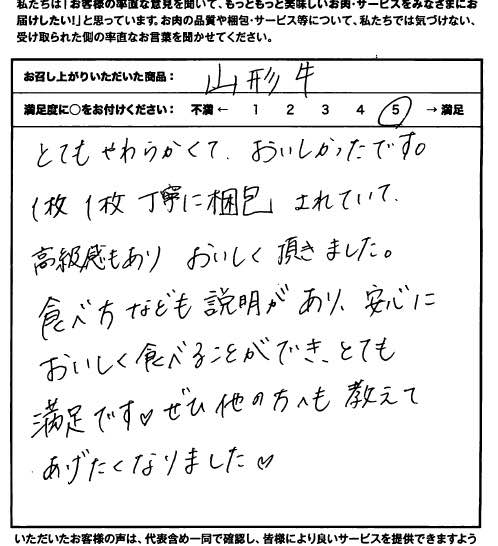 私たちは「お客様の率直な意見を聞いて、もっともっと美味しいお肉・サービスをみなさまにお
届けしたい!」と思っています。お肉の品質や梱包・サービス等について、私たちでは気づけない、
受け取られた側の率直なお言葉を聞かせてください。
お召し上がりいただいた商品： 山形牛
満足度に○をお付けください： 不満 ← 1 2 3 4 5 → 満足
とてもやわらかくて、おいしかったです。
1枚1枚丁寧に梱包されていて、
高級感もあり おいしく頂きました。
食べ方なども説明があり、安心に
おいしく食べることができ、とても
満足です♡ぜひ他の方へも教えて
あげたくなりました♡
いただいたお客様の声は、代表含め一同で確認し、皆様により良いサービスを提供できますよう